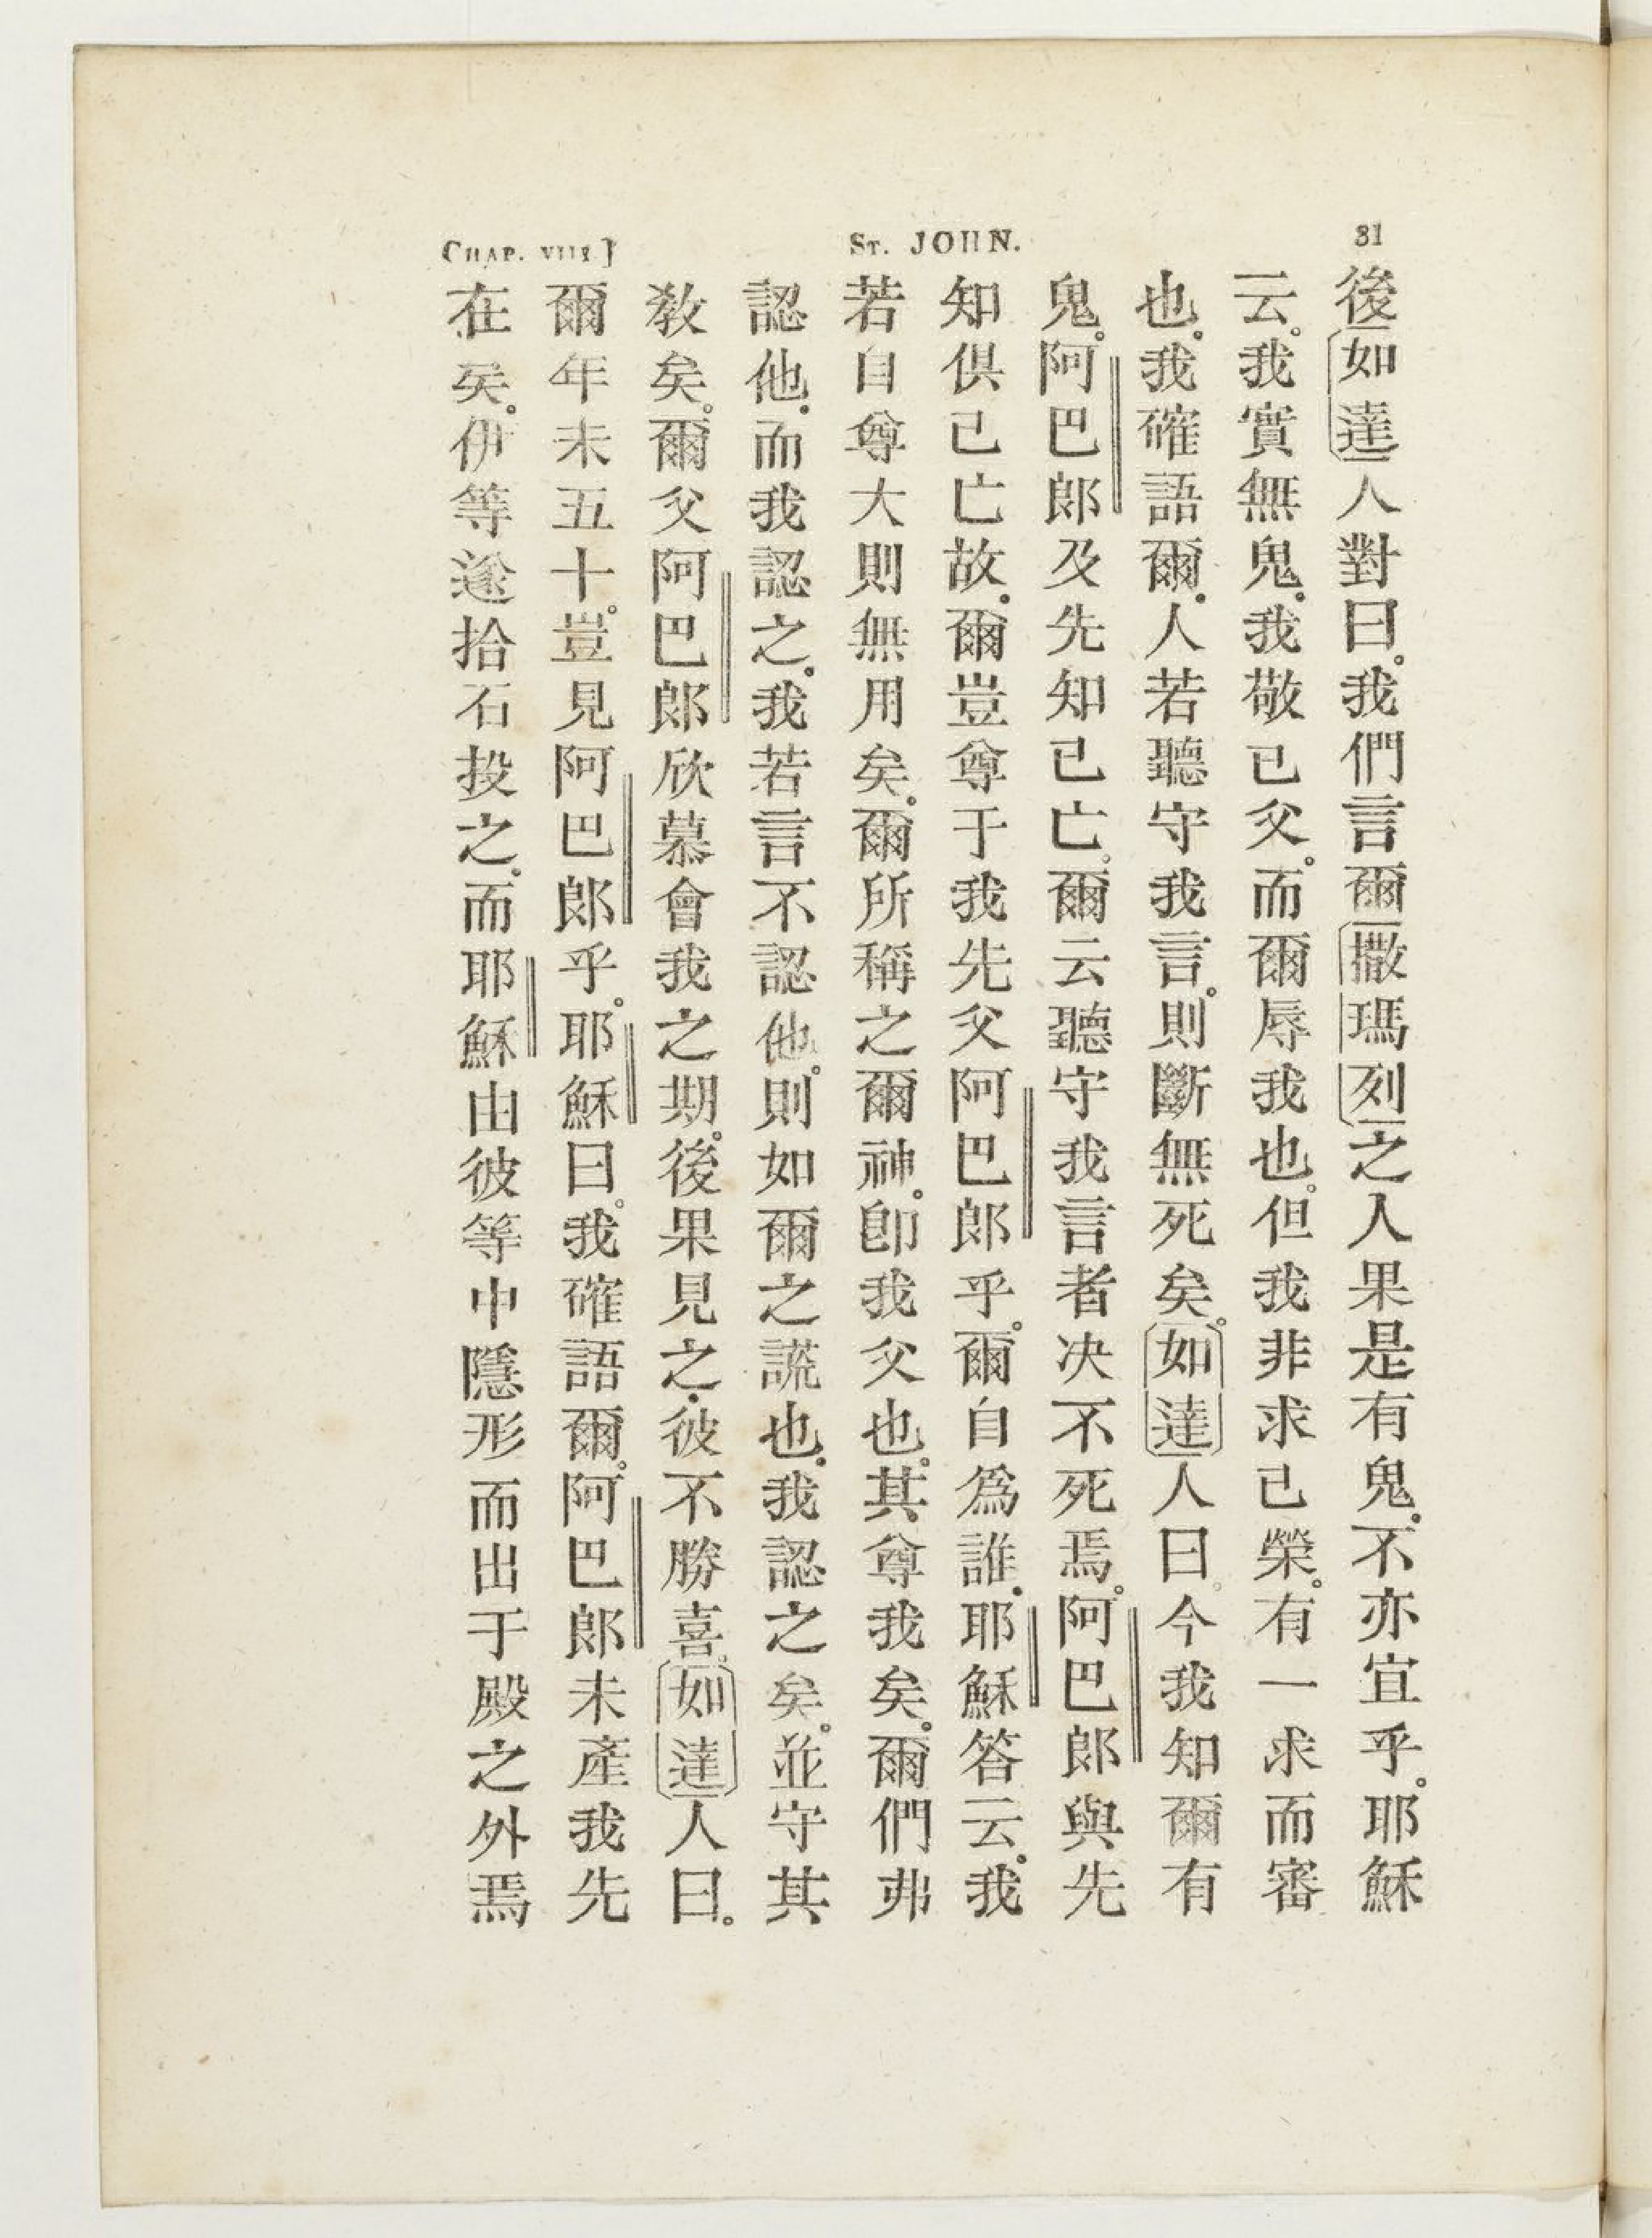 CHAP. VIII.]
ST. JOHN.
31
後如達人對曰。我們言爾撒瑪列之人果是有鬼。不亦宜乎。耶穌
云。我實無鬼。我敬己父。而爾辱我也。但我非求己榮。有一求而審
也。我確語爾。人若聽守我言。則斷無死矣。如達人曰。今我知爾有
鬼。阿巴郎及先知已亡。爾云聽守我言者决不死焉。阿巴郎與先
知俱已亡故。爾豈尊于我先父阿巴郎乎。爾自爲誰。耶穌答云。我
若自尊大則無用矣。爾所稱之爾神。卽我父也。其尊我矣。爾們弗
認他。而我認之。我若言不認他。則如爾之謊也。我認之矣。並守其
敎矣。爾父阿巴郎欣慕會我之期。後果見之。彼不勝喜。如達人曰。
爾年未五十。豈見阿巴郎乎。耶穌曰。我確語爾。阿巴郎未產我先
在矣。伊等遂拾石投之。而耶穌由彼等中隱形而出于殿之外焉